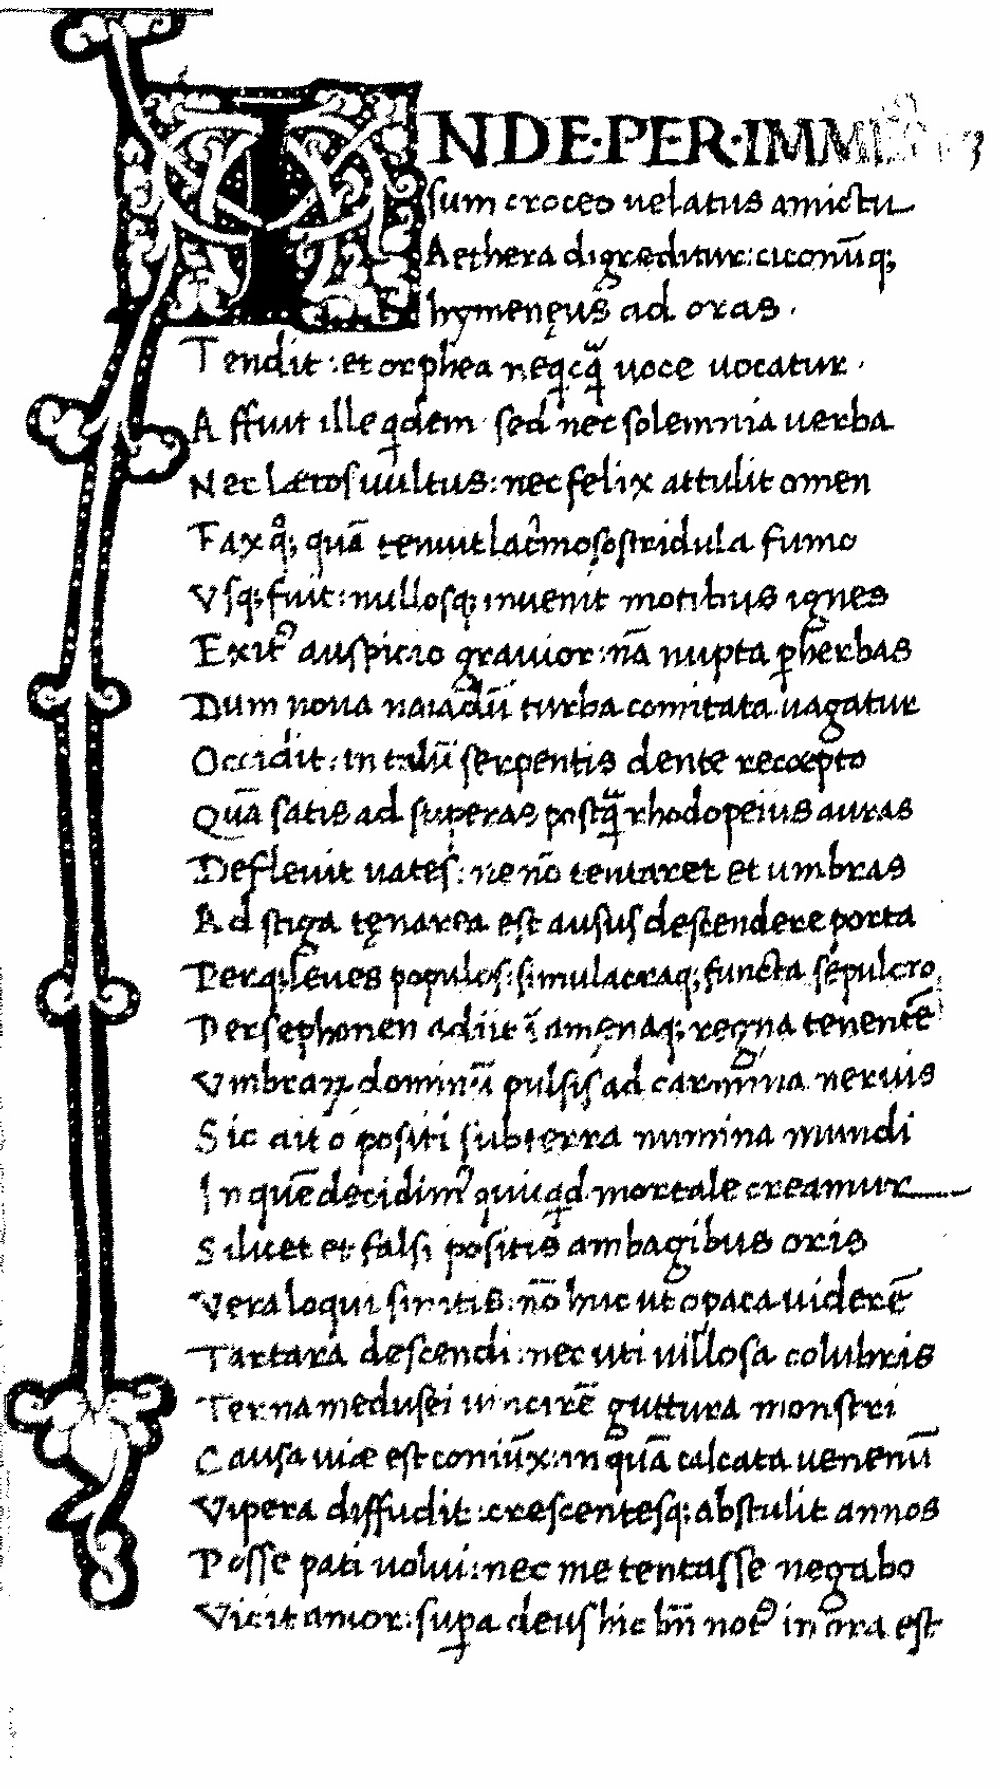 INDE·PER·IMMEN
sum croceo uelatus amictu
Aethera digreditur: ciconūq;
hymenęus ad oras ·
Tendit: et orphea neqcq̄ uoce uocatur ·
Affuit ille qdem sed nec solemnia uerba
Nec lætos uultus: nec felix attulit omen
Fax q°; quā tenuit lacrimoso stridula fumo
Vsq; fuit: nullosq; inuenit motibus ignes
Exit9 auspicio grauior: nā nupta p herbas
Dum noua naiadū turba comitata uagatur
Occidit: in talū serpentis dente recepto
Quā satis ad superas postq̄ rhodopeius auras
Defleuit uates: ne nō tentaret et umbras
Ad stiga tęnarea est ausus descendere porta
Perq; leues populos: simulacraq; functa sepulcro
Persephonen adiit ī amenaq; regna tenentē
Vmbraꝝ dominū pulsis ad carmina neruis
Sic ait o positi sub terra numina mundi
In quē decidim9 quicqd mortale creamur
Si licet et falsi positis ambagibus oris
Vera loqui sinitis: nō huc ut opaca uiderē
Tartara descendi: nec uti uillosa colubris
Terna medusei uincirē guttura monstri
Causa uiæ est coniūx: in quā calcata uenenū
Vipera diffudit: crescentesq; abstulit annos
Posse pati uolui: nec me tentasse negabo
Vicit amor: supa deus hic bn̄ not9 in ora est